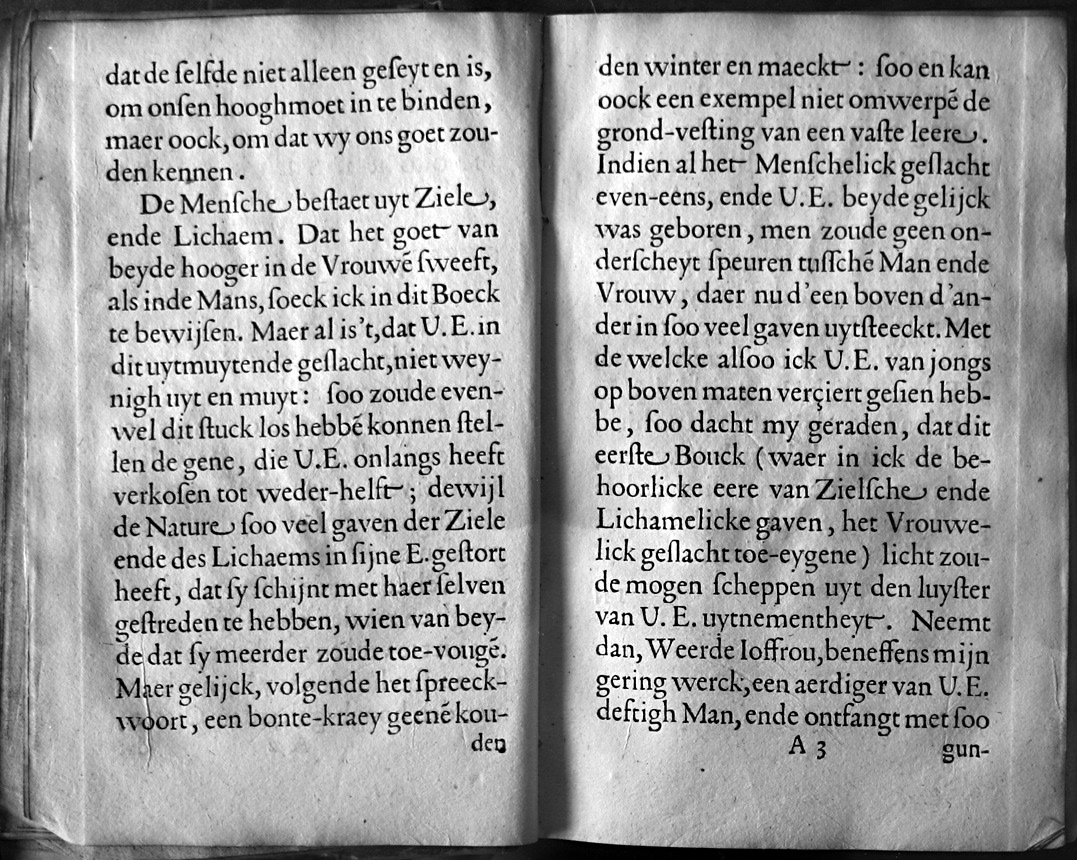 dat de ſelfde niet alleen geſeyt en is,
om onſen hooghmoet in te binden,
maer oock, om dat wy ons goet zou-
den kennen.
De Menſche beſtaet uyt Ziele,
ende Lichaem. Dat het goet van
beyde hooger in de Vrouwé ſweeft,
als inde Mans, ſoeck ick in dit Boeck
te bewijſen. Maer al is't, dat U.E. in
dit uytmuytende geſlacht, niet wey-
nigh uyt en muyt: ſoo zoude even-
wel dit ſtuck los hebbé konnen ſtel-
len de gene, die U.E. onlangs heeft
verkoſen tot weder-helft; dewijl
de Nature ſoo veel gaven der Ziele
ende des Lichaems in ſijne E. geſtort
heeft, dat ſy ſchijnt met haer ſelven
geſtreden te hebben, wien van bey-
de dat ſy meerder zoude toe-vougé.
Maer gelijck, volgende het ſpreeck-
woort, een bonte-kraey geené kou-
den
den winter en maeckt: ſoo en kan
oock een exempel niet omwerpé de
grond-veſting van een vaſte leere.
Indien al het Menſchelick geſlacht
even-eens, ende U.E. beyde gelijck
was geboren, men zoude geen on-
derſcheyt ſpeuren tuſſché Man ende
Vrouw, daer nu d'een boven d'an-
der in ſoo veel gaven uytſteeckt. Met
de welcke alſoo ick U.E. van jongs
op boven maten verçiert geſien heb-
be, ſoo dacht my geraden, dat dit
eerſte Bouck (waer in ick de be-
hoorlicke eere van Zielſche ende
Lichamelicke gaven, het Vrouwe-
lick geſlacht toe-eygene) licht zou-
de mogen ſcheppen uyt den luyſter
van U.E. uytnementheyt. Neemt
dan, Weerde Ioffrou, beneffens mijn
gering werck, een aerdiger van U.E.
deftigh Man, ende ontfangt met ſoo
A 3 gun-